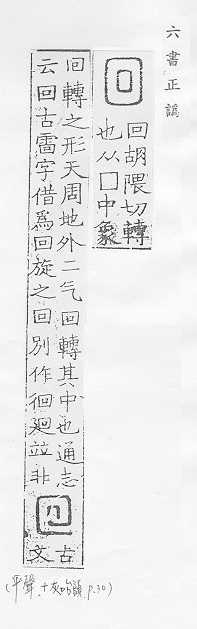 六書正譌
回
回胡隈切轉
也从囗中象
回轉之形天周地外二气回轉其中也通志
云回古雷字借爲回旋之回別作徊廻竝非
古
文
(平聲.十灰咍韻 p.30)